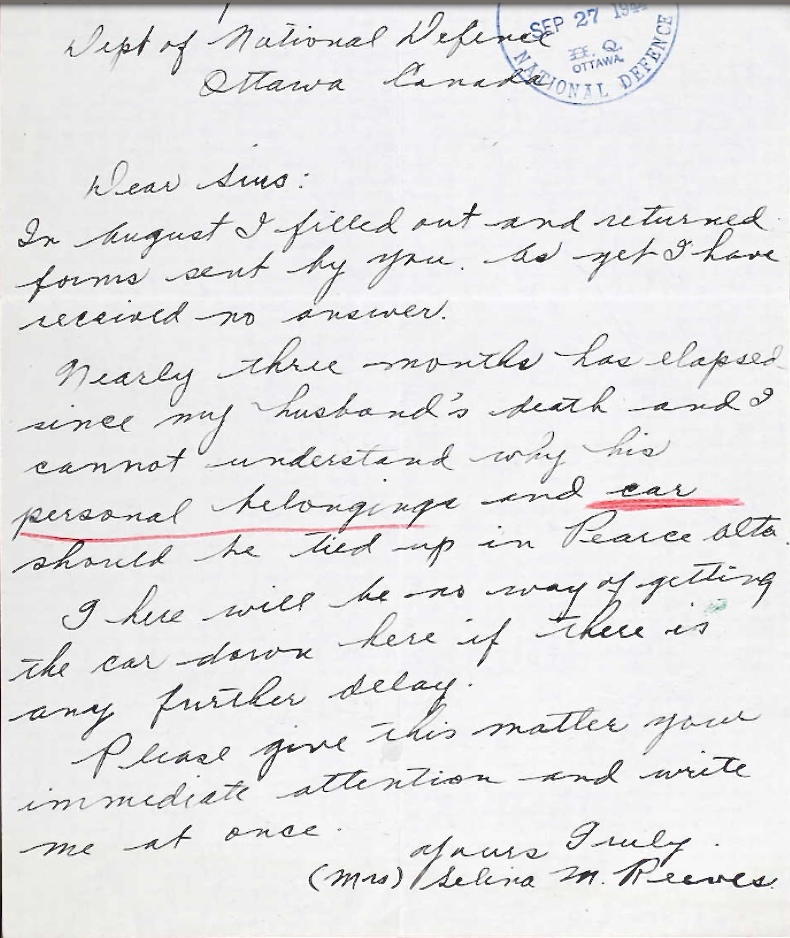 SEP 27 194
H. Q.
OTTAWA.
NATIONAL DEFENCE
Dept of National Defence
Ottawa Canada
Dear Sirs:
In August I filled out and returned
forms sent by you. As yet I have
received no answer.
Nearly three months has elapsed
since my husband's death and I
cannot understand why his
personal belongings and car
should be tied up in Pearce Alta.
There will be no way of getting
the car down here if there is
any further delay.
Please give this matter your
immediate attention and write
me at once.
Yours Truly.
(Mrs) Selina M. Reeves.